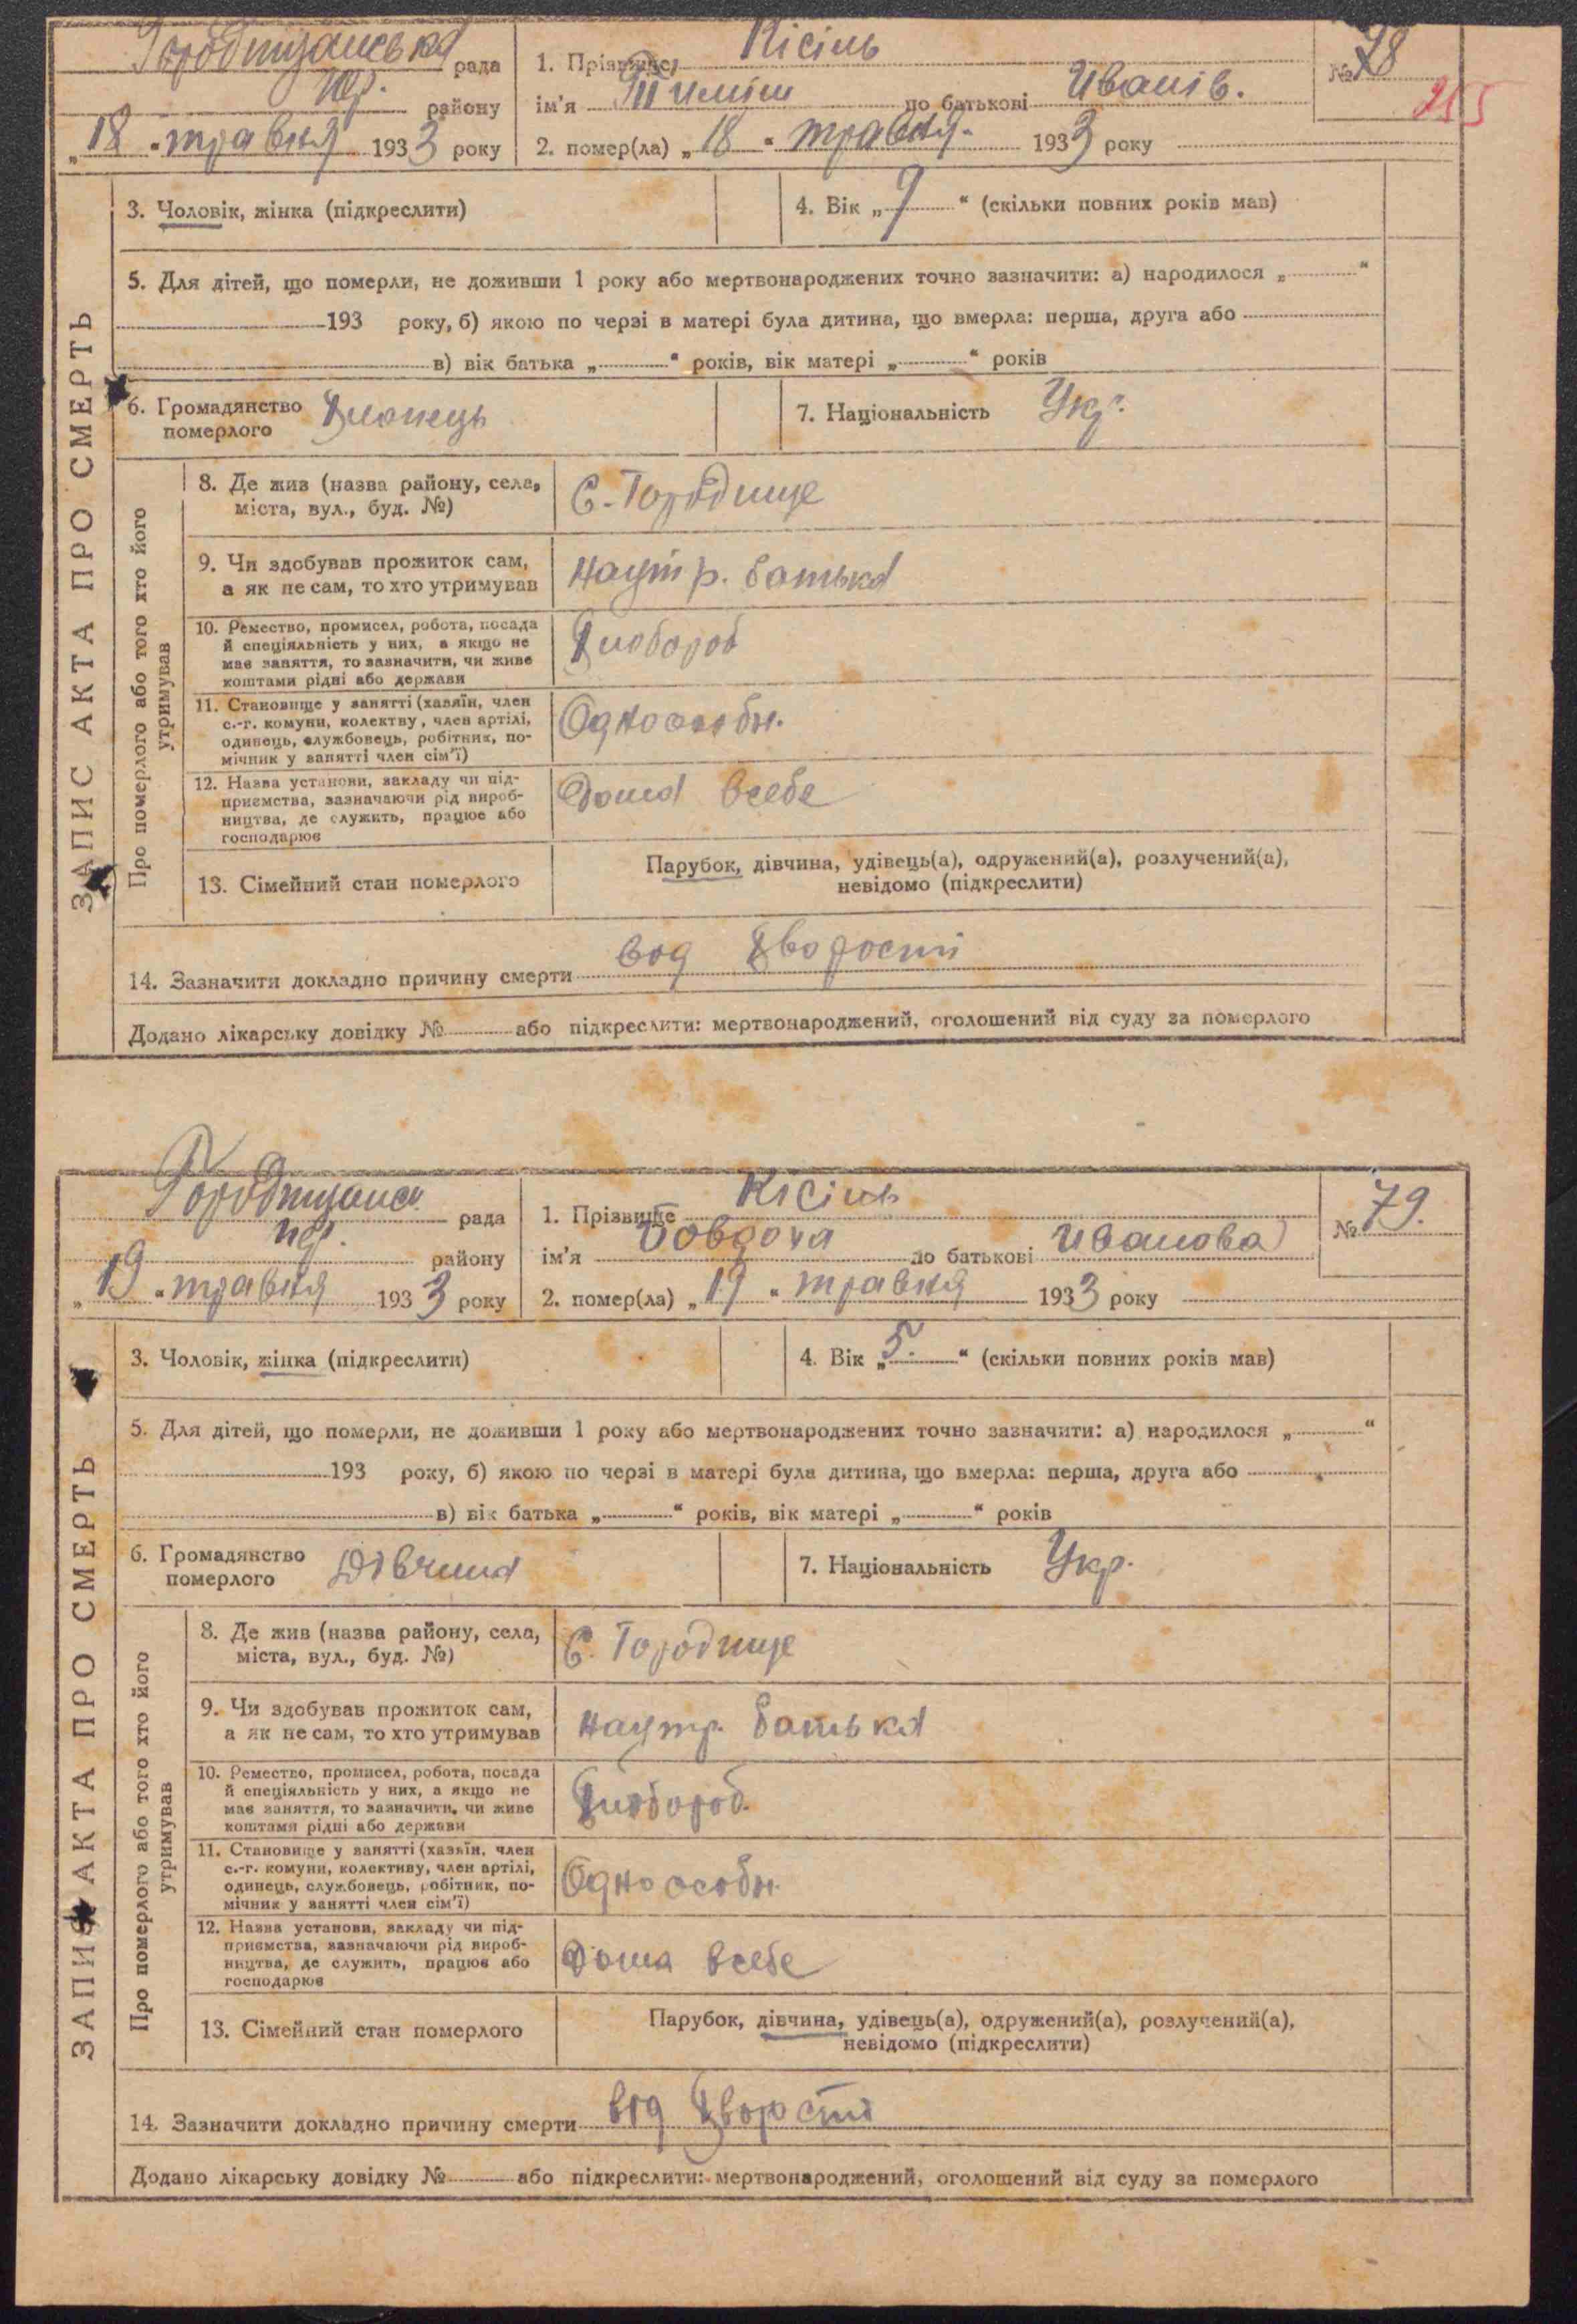 Городищанська рада
1. Прізвище Кісіль
№ 78
255
району
ім'я по батькові Иванів.
„18“ травня 1933 року
2. помер(ла) „18“ травня. 1933 року
ЗАПИС АКТА ПРО СМЕРТЬ
3. Чоловік, жінка (підкреслити)
4. Вік „9“ (скільки повних років мав)
5. Для дітей, що померли, не доживши 1 року або мертвонароджених точно зазначити: а) народилося „ “
193 року, б) якою по черзі в матері була дитина, що вмерла: перша, друга або
в) вік батька „ “ років, вік матері „ “ років
6. Громадянство померлого Хлопець
7. Національність Укр.
Про померлого або того хто його утримував
8. Де жив (назва району, села,
міста, вул., буд. №)
С. Городище
9. Чи здобував прожиток сам,
а як не сам, то хто утримував
наутр. батька
10. Ремество, промисел, робота, посада
й спеціяльність у них, а якщо не
має заняття, то зазначити, чи живе
коштами рідні або держави
Хлібороб
11. Становище у занятті (хазяїн, член
с.-г. комуни, колективу, член артілі,
одинець, службовець, робітник, по-
мічник у занятті член сім'ї)
Одноособн.
12. Назва установи, закладу чи під-
приємства, зазначаючи рід вироб-
ництва, де служить, працює або
господарює
Дома всебе
13. Сімейний стан померлого
Парубок, дівчина, удівець(а), одружений(а), розлучений(а),
невідомо (підкреслити)
14. Зазначити докладно причину смерти вод Хворости
Додано лікарську довідку № або підкреслити: мертвонароджений, оголошений від суду за померлого
Городищанськ. рада
1. Прізвище Кісіль
№ 79.
району
ім'я Бовдоха по батькові Иванова
„19“ травня 1933 року
2. помер(ла) „19“ травня 1933 року
ЗАПИС АКТА ПРО СМЕРТЬ
3. Чоловік, жінка (підкреслити)
4. Вік „5.“ (скільки повних років мав)
5. Для дітей, що померли, не доживши 1 року або мертвонароджених точно зазначити: а) народилося „ “
193 року, б) якою по черзі в матері була дитина, що вмерла: перша, друга або
в) вік батька „ “ років, вік матері „ “ років
6. Громадянство померлого Дівчина
7. Національність Укр.
Про померлого або того хто його утримував
8. Де жив (назва району, села,
міста, вул., буд. №)
С. Городище
9. Чи здобував прожиток сам,
а як не сам, то хто утримував
наутр. батька
10. Ремество, промисел, робота, посада
й спеціяльність у них, а якщо не
має заняття, то зазначити, чи живе
коштами рідні або держави
Хлібороб.
11. Становище у занятті (хазяїн, член
с.-г. комуни, колективу, член артілі,
одинець, службовець, робітник, по-
мічник у занятті член сім'ї)
Одноособн.
12. Назва установи, закладу чи під-
приємства, зазначаючи рід вироб-
ництва, де служить, працює або
господарює
Дома всебе
13. Сімейний стан померлого
Парубок, дівчина, удівець(а), одружений(а), розлучений(а),
невідомо (підкреслити)
14. Зазначити докладно причину смерти від Хворости
Додано лікарську довідку № або підкреслити: мертвонароджений, оголошений від суду за померлого